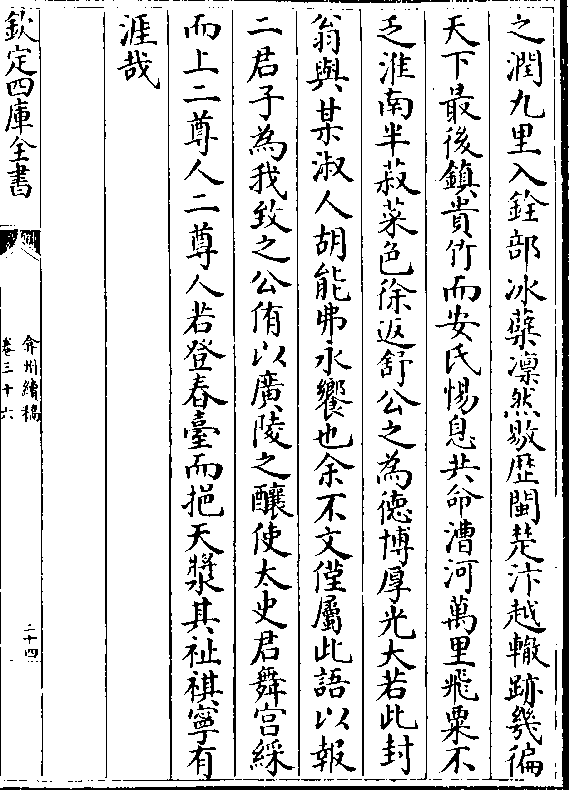 之潤九里入銓部冰蘖凜然敭歴閩楚汴越轍跡幾徧
天下最後鎮貴竹而安氏惕息共命漕河萬里飛粟不
乏淮南半菽菜色徐返舒公之為德博厚光大若此封
翁與某淑人胡能弗永饗也余不文僅屬此語以報
二君子為我致之公侑以廣陵之釀使太史君舞宫綵
而上二尊人二尊人若登春臺而挹天漿其祉祺寧有
涯哉
欽定四庫全書
弇州續稿
卷三十六
二十四